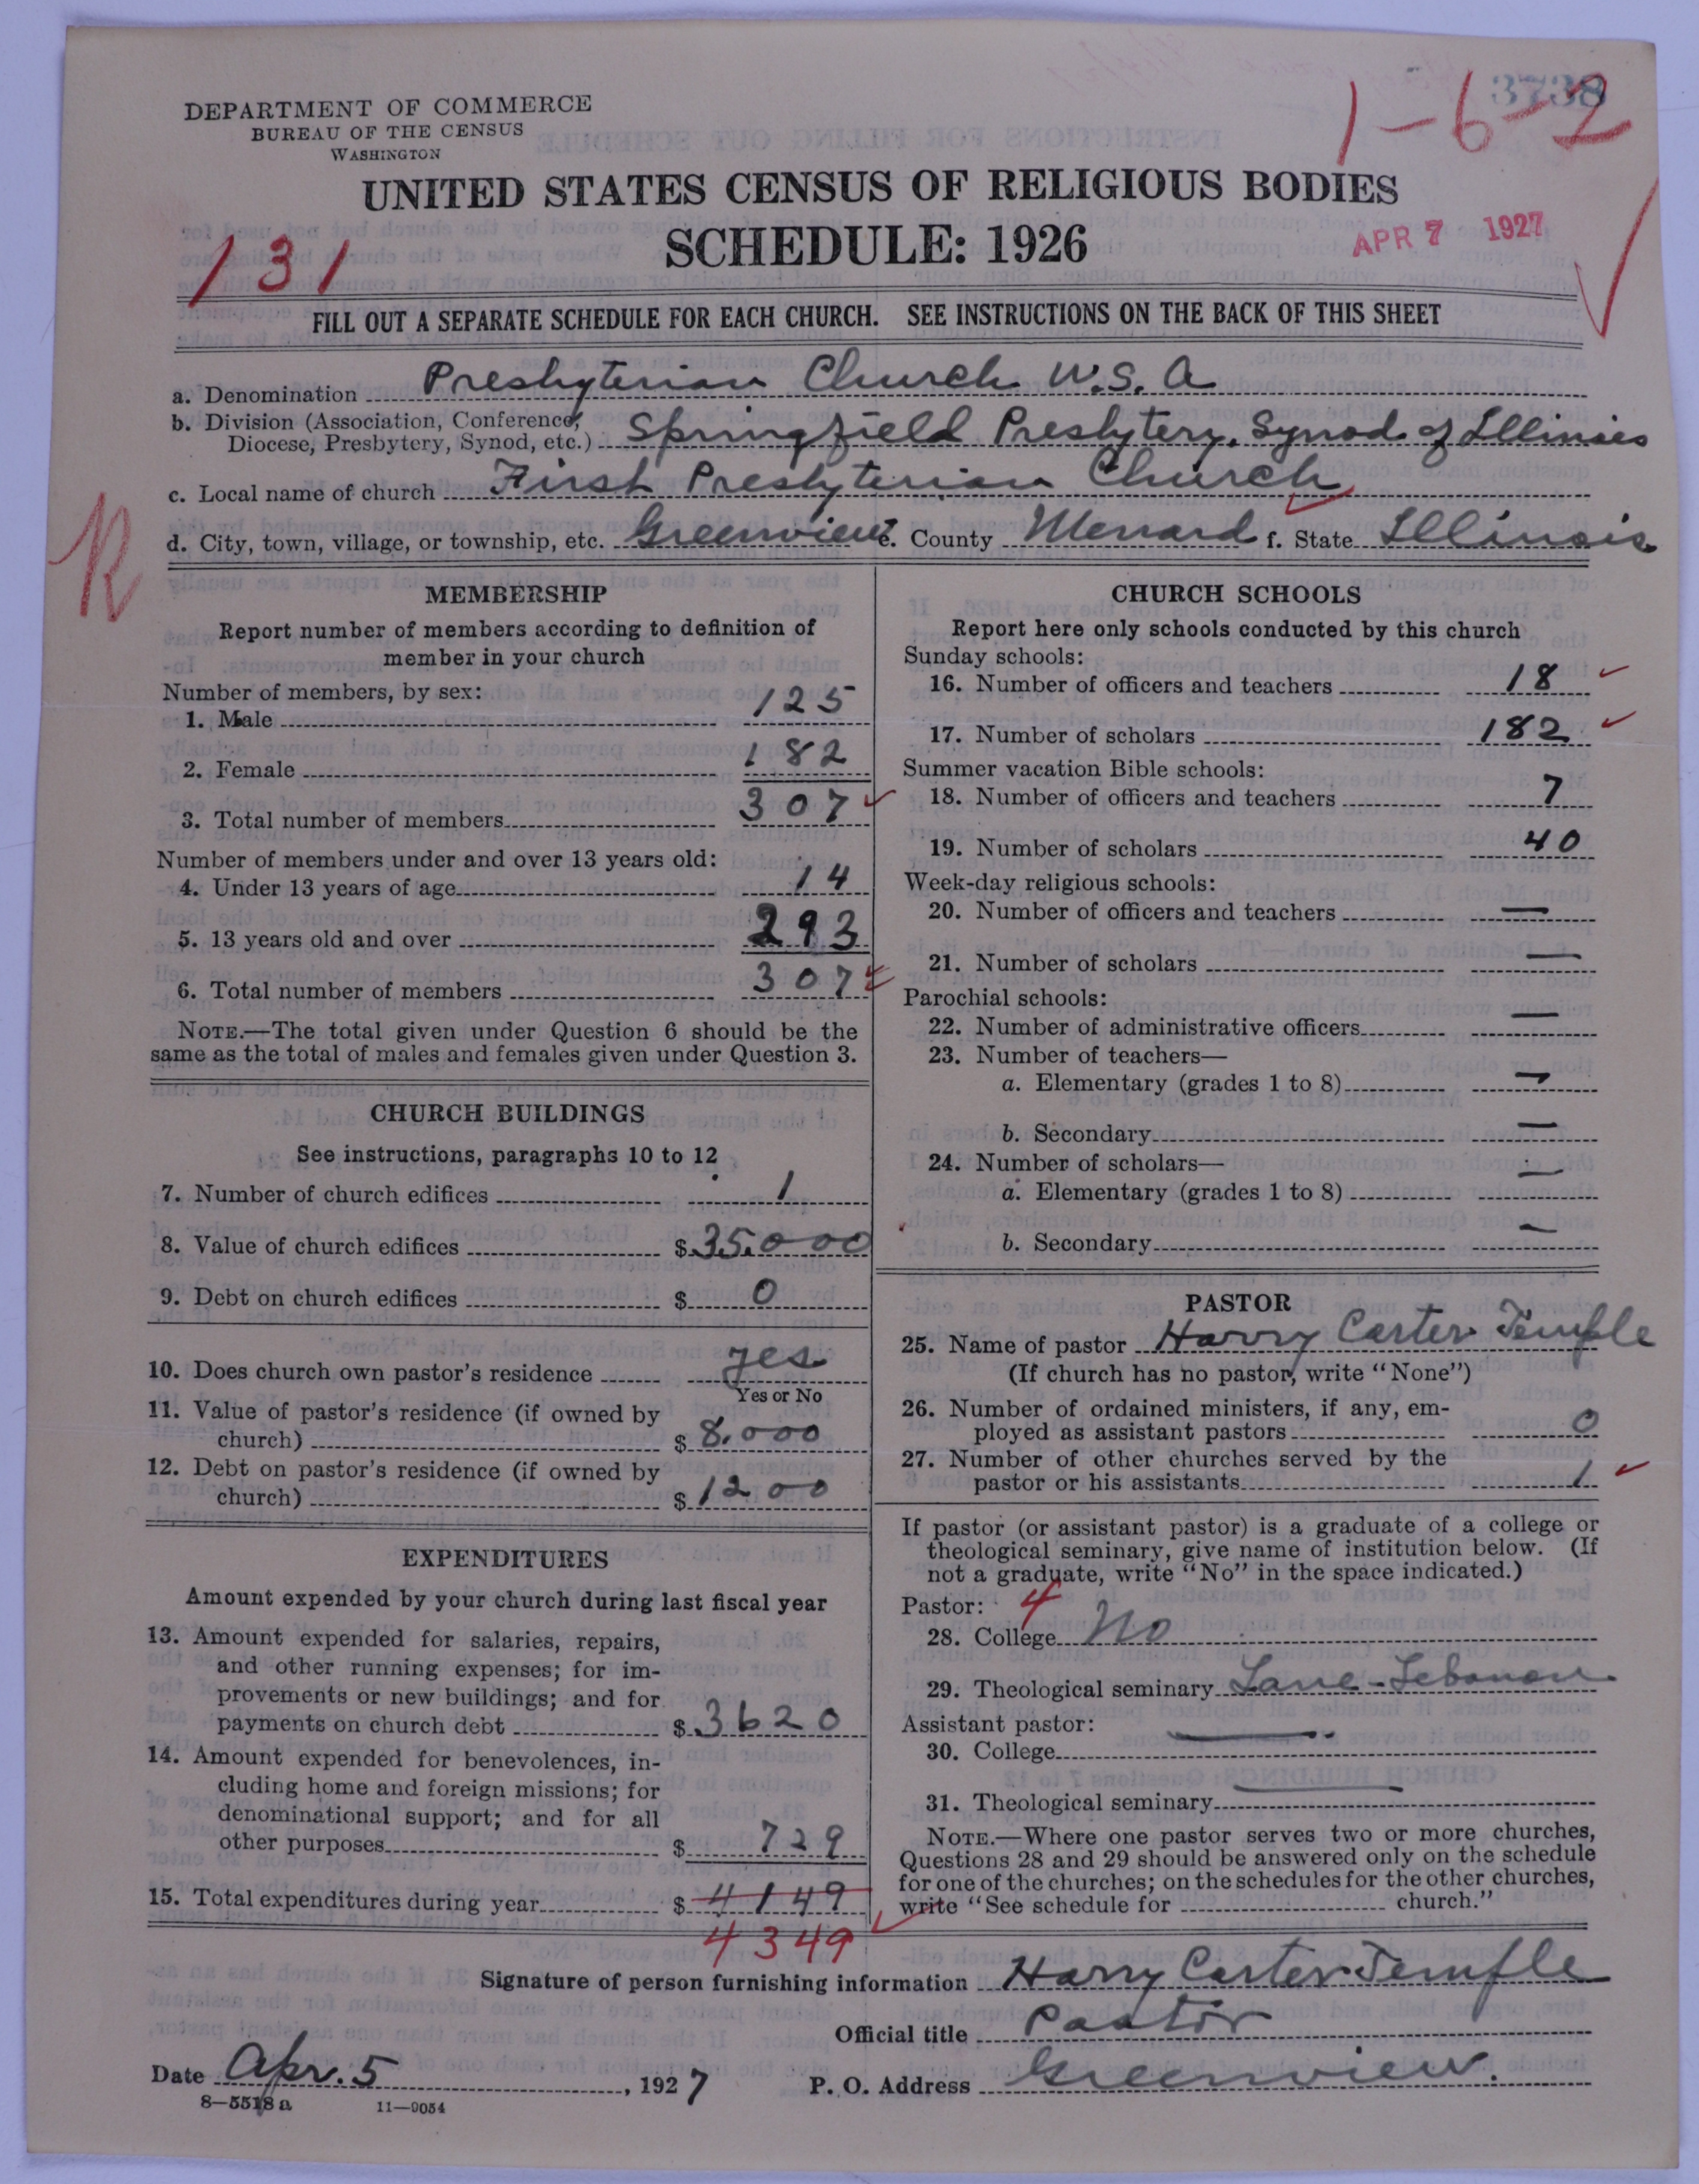 3738
1-6-2
DEPARTMENT OF COMMERCE
BUREAU OF THE CENSUS
WASHINGTON
UNITED STATES CENSUS OF RELIGIOUS BODIES
SCHEDULE: 1926
APR 7 1927
131
FILL OUT A SEPARATE SCHEDULE FOR EACH CHURCH. SEE INSTRUCTIONS ON THE BACK OF THIS SHEET
a. Denomination Presbyterian Church U.S.A
b. Division (Association, Conference,
Diocese, Presbytery, Synod, etc.) Springfield Presbytery, Synod of Illinois
c. Local name of church First Presbyterian Church
d. City, town, village, or township, etc. Greenview e. County Menard f. State Illinois
MEMBERSHIP
Report number of members according to definition of
member in your church
Number of members, by sex:
1. Male 125
2. Female 182
3. Total number of members 307
Number of members under and over 13 years old:
4. Under 13 years of age 14
5. 13 years old and over 293
6. Total number of members 307
NOTE.—The total given under Question 6 should be the
same as the total of males and females given under Question 3.
CHURCH BUILDINGS
See instructions, paragraphs 10 to 12
7. Number of church edifices 1
8. Value of church edifices $35,000
9. Debt on church edifices $0
10. Does church own pastor's residence yes
Yes or No
11. Value of pastor's residence (if owned by
church) $8,000
12. Debt on pastor's residence (if owned by
church) $1200
EXPENDITURES
Amount expended by your church during last fiscal year
13. Amount expended for salaries, repairs,
and other running expenses; for im-
provements or new buildings; and for
payments on church debt $3620
14. Amount expended for benevolences, in-
cluding home and foreign missions; for
denominational support; and for all
other purposes $729
15. Total expenditures during year $4149
4349
CHURCH SCHOOLS
Report here only schools conducted by this church
Sunday schools:
16. Number of officers and teachers 18
17. Number of scholars 182
Summer vacation Bible schools:
18. Number of officers and teachers 7
19. Number of scholars 40
Week-day religious schools:
20. Number of officers and teachers —
21. Number of scholars —
Parochial schools:
22. Number of administrative officers —
23. Number of teachers—
a. Elementary (grades 1 to 8) —
b. Secondary —
24. Number of scholars—
a. Elementary (grades 1 to 8) —
b. Secondary —
PASTOR
25. Name of pastor Harry Carter Temple
(If church has no pastor, write "None")
26. Number of ordained ministers, if any, em-
ployed as assistant pastors 0
27. Number of other churches served by the
pastor or his assistants 1
If pastor (or assistant pastor) is a graduate of a college or
theological seminary, give name of institution below. (If
not a graduate, write "No" in the space indicated.)
Pastor: 4
28. College No
29. Theological seminary Lane - Lebanon
Assistant pastor:
30. College —
31. Theological seminary —
NOTE.—Where one pastor serves two or more churches,
Questions 28 and 29 should be answered only on the schedule
for one of the churches; on the schedules for the other churches,
write "See schedule for church."
Signature of person furnishing information Harry Carter Temple
Official title Pastor
Date Apr. 5, 1927 P. O. Address Greenview.
8—5518a 11—9054